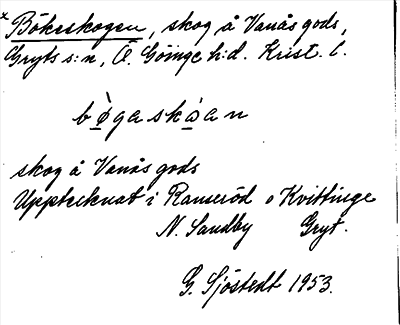 x Bökeskogen, skog å Vanås gods,
Gryts s:n, Ö. Göinge h:d. Krist. l.
bø̀gaskåan
skog å Vanås gods
Upptecknat i Ranseröd o Kvittinge
N. Sandby Gryt.
G. Sjöstedt 1953.